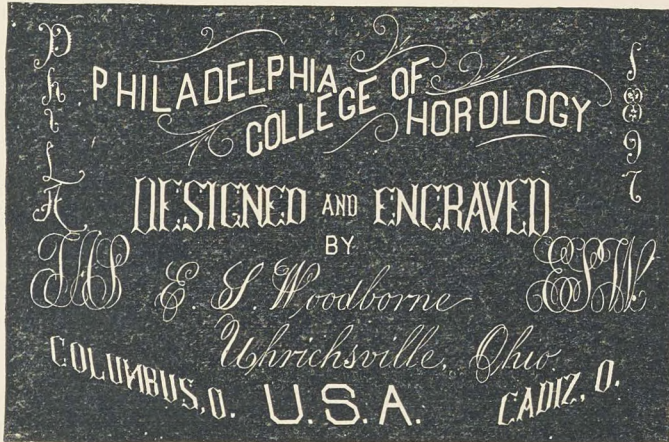 PhiLA
1897
PHILADELPHIA
COLLEGE OF
HOROLOGY
DESIGNED AND ENGRAVED
BY
E. S. Woodborne
ESW
Uhrichsville, Ohio.
COLUMBUS, O.
U.S.A.
CADIZ, O.